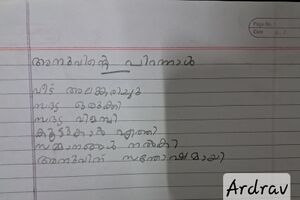 Page No.
Date
അനുവിന്റെ പിറന്നാൾ
വീട് അലങ്കരിച്ചു
സദ്യ ഒരുക്കി
സദ്യ വിളമ്പി
കൂട്ടുകാർ എത്തി
സമ്മാനങ്ങൾ നൽകി
അനുവിന് സന്തോഷമായി
Ardrav